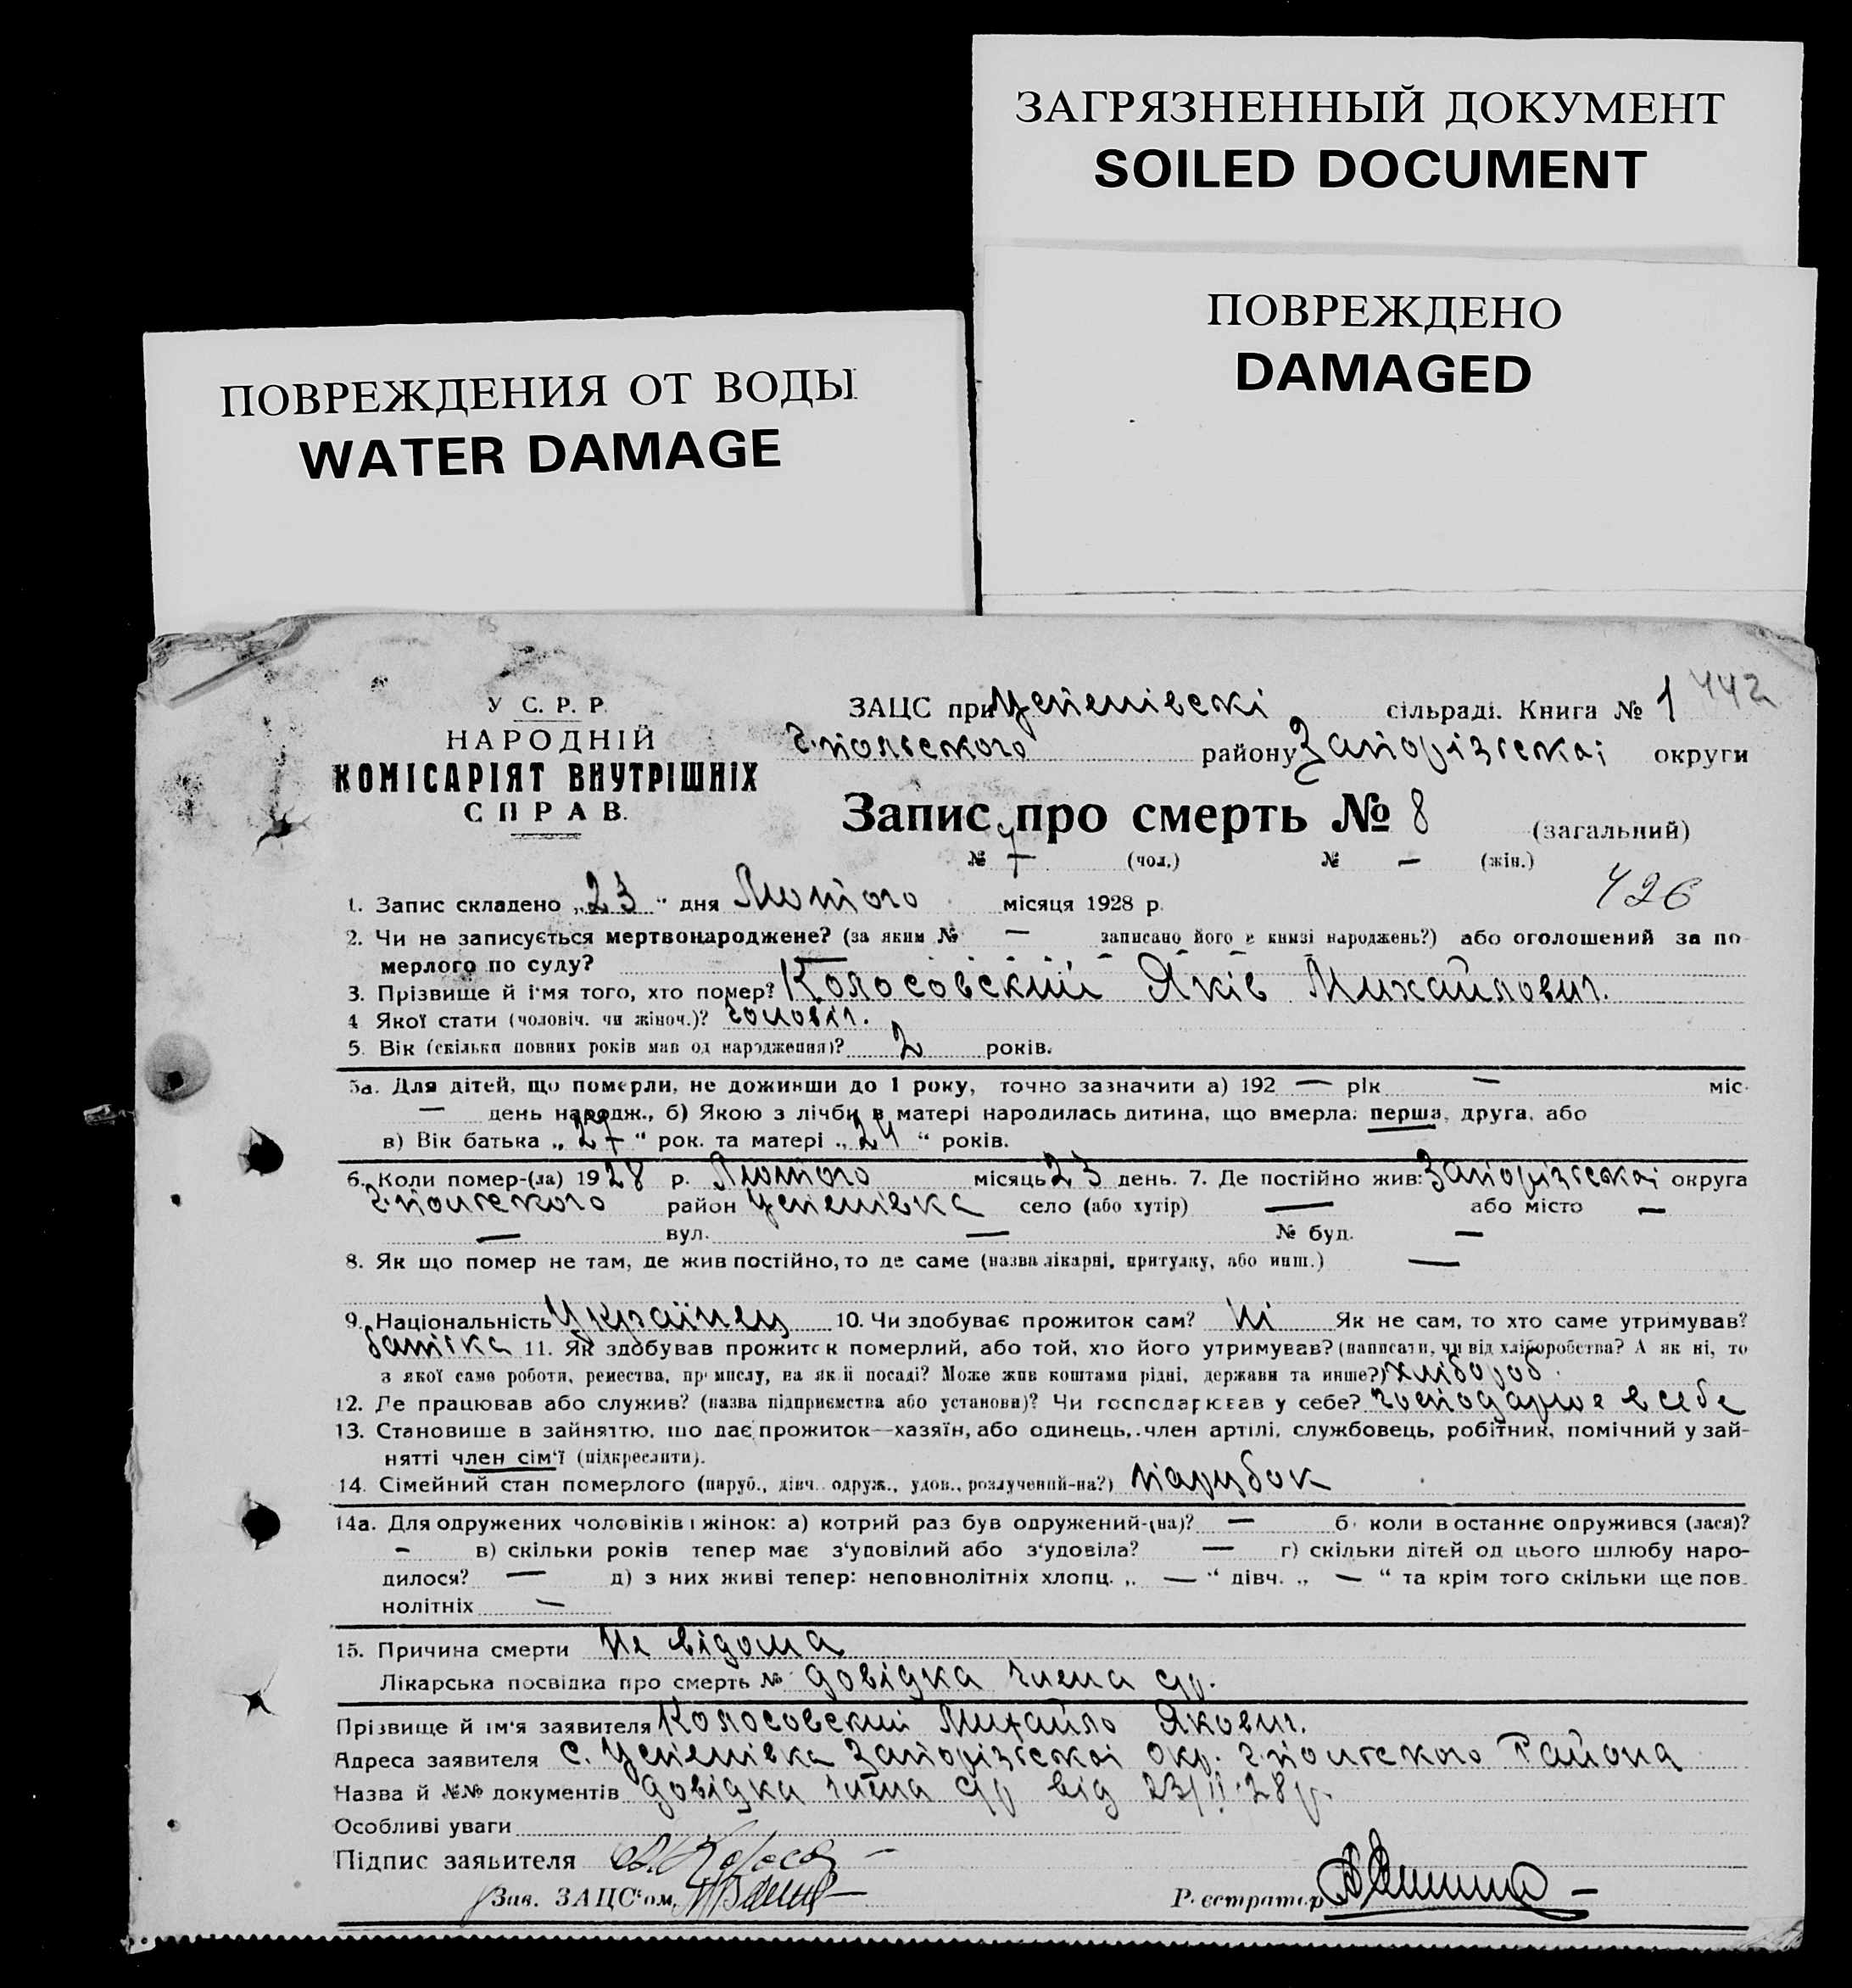 ЗАГРЯЗНЕННЫЙ ДОКУМЕНТ
SOILED DOCUMENT
ПОВРЕЖДЕНО
DAMAGED
ПОВРЕЖДЕНИЯ ОТ ВОДЫ
WATER DAMAGE
У С. Р. Р.
НАРОДНІЙ
КОМІСАРІЯТ ВНУТРІШНІХ
СПРАВ.
ЗАЦС при Успенівскі сільраді. Книга № 1 442
Г.польского району Запорізської округи
Запис про смерть № 8 (загальний)
№ 7 (чол.) № — (жін.)
426
1. Запис складено „23" дня Лютого місяця 1928 р.
2. Чи не записується мертвонароджене? (за яким № — записано його в книзі народжень?) або оголошений за по-
мерлого по суду? —
3. Прізвище й ім'я того, хто помер? Колосовский Яків Михайлович.
4 Якої стати (чоловіч. чи жіноч.)? чоловіч.
5. Вік (скільки повних років мав од народження)? 2 років.
5а. Для дітей, що померли, не доживши до 1 року, точно зазначити а) 192 — рік — міс.
— день народж., б) Якою з лічби в матері народилась дитина, що вмерла: перша, друга, або
в) Вік батька „27" рок. та матері „24" років.
6. Коли помер-(ла) 1928 р. Лютого місяць 23 день. 7. Де постійно жив: Запорізської округа
Г.польского район Успенівка село (або хутір) — або місто —
— вул. — № буд. —
8. Як що помер не там, де жив постійно, то де саме (назва лікарні, притулку, або инш.) —
9. Національність Українец 10. Чи здобуває прожиток сам? Ні Як не сам, то хто саме утримував?
батька 11. Як здобував прожиток померлий, або той, хто його утримував? (написати, чи від хліборобства? А як ні, то
з якої саме роботи, ремества, промислу, на якій посаді? Може жив коштами рідні, держави та инше?) хлібороб.
12. Де працював або служив? (назва підприємства або установи)? Чи господарював у себе? господарює в себе
13. Становище в зайняттю, що дає прожиток—хазяїн, або одинець, член артілі, службовець, робітник, помічний у зай-
нятті член сім'ї (підкреслити).
14. Сімейний стан померлого (паруб., дівч. одруж., удов., розлучений-на?) парубок
14а. Для одружених чоловіків і жінок: а) котрий раз був одружений-(на)? — б) коли востаннє одружився (лася)?
— в) скільки років тепер має з'удовілий або з'удовіла? — г) скільки дітей од цього шлюбу наро-
дилося? — д) з них живі тепер: неповнолітніх хлопц. „ — " дівч. „ — " та крім того скільки ще пов-
нолітніх —
15. Причина смерти Не відома
Лікарська посвідка про смерть № довідка члена с/р.
Прізвище й ім'я заявителя Колосовский Михайло Якович.
Адреса заявителя с. Успенівка Запорізської окр. Г.польского Района
Назва й №№ документів довідка члена с/р від 23/II-28р.
Особливі уваги
Підпис заявителя
Зав. ЗАЦС'ом,
Реєстратор